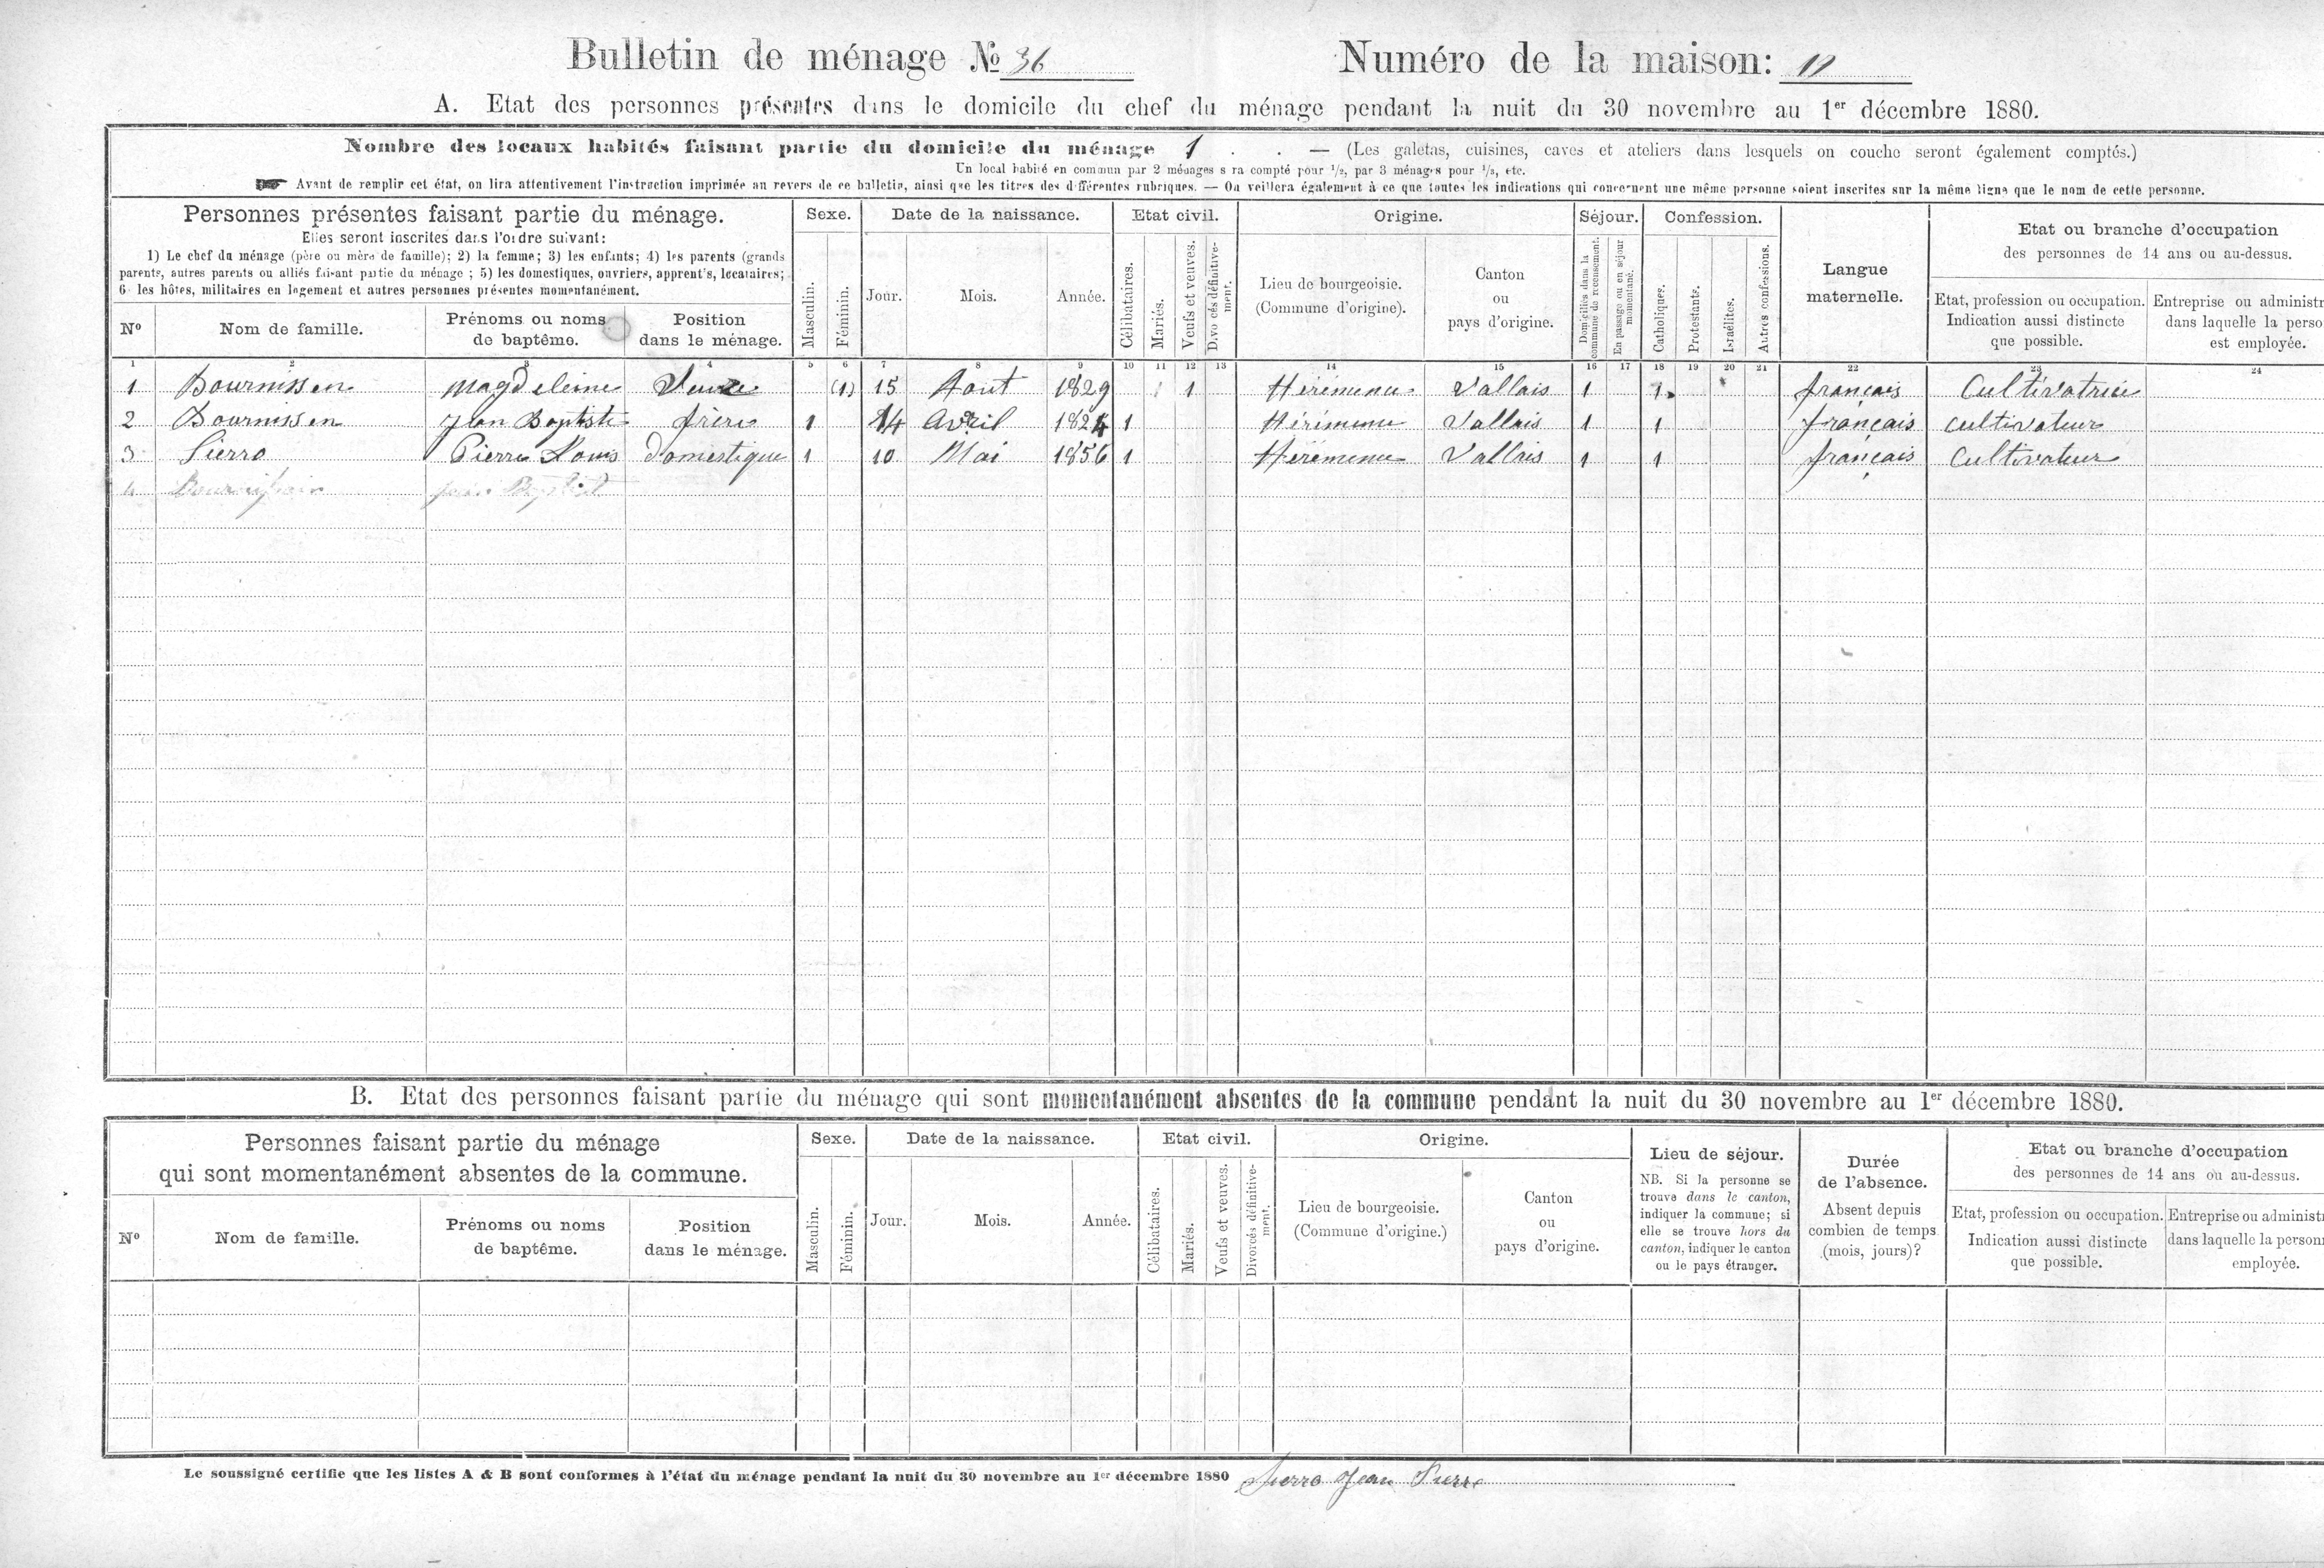 Bulletin de ménage No 36 Numéro de la maison: 11
A. Etat des personnes présentes dans le domicile du chef du ménage pendant la nuit du 30 novembre au 1er décembre 1880.
Nombre des locaux habités faisant partie du domicile du ménage 1 . . — (Les galetas, cuisines, caves et ateliers dans lesquels on couche seront également comptés.)
Un local habité en commun par 2 ménages sera compté pour 1/2, par 3 ménages pour 1/3, etc.
Avant de remplir cet état, on lira attentivement l'instruction imprimée au revers de ce bulletin, ainsi que les titres des différentes rubriques. — On veillera également à ce que toutes les indications qui concernent une même personne soient inscrites sur la même ligne que le nom de cette personne.
Personnes présentes faisant partie du ménage. Sexe. Date de la naissance. Etat civil. Origine. Séjour. Confession. Langue maternelle. Etat ou branche d'occupation
Elles seront inscrites dans l'ordre suivant: des personnes de 14 ans ou au-dessus.
1) Le chef du ménage (père ou mère de famille); 2) la femme; 3) les enfants; 4) les parents (grands
parents, autres parents ou alliés faisant partie du ménage; 5) les domestiques, ouvriers, apprent's, locataires;
6 les hôtes, militaires en logement et autres personnes présentes momentanément.
No Nom de famille. Prénoms ou noms de baptême. Position dans le ménage. Masculin. Féminin. Jour. Mois. Année. Célibataires. Mariés. Veufs et veuves. Divorcés définitivement. Lieu de bourgeoisie. (Commune d'origine). Canton ou pays d'origine. Domiciliés dans la commune de recensement. En passage ou en séjour momentané. Catholiques. Protestants. Israélites. Autres confessions. Etat, profession ou occupation. Indication aussi distincte que possible. Entreprise ou administr dans laquelle la perso est employée.
1 2 3 4 5 6 7 8 9 10 11 12 13 14 15 16 17 18 19 20 21 22 23 24
1 Bournissen Magdeleine Veuve (1) 15 Aout 1829 1 Hérémence Vallais 1 1 français Cultivatrice
2 Bournissen Jean Baptiste frère 1 14 Avril 1824 1 Hérémence Vallais 1 1 français cultivateur
3 Sierro Pierre Louis domestique 1 10 Mai 1856 1 Hérémence Vallais 1 1 français Cultivateur
4
B. Etat des personnes faisant partie du ménage qui sont momentanément absentes de la commune pendant la nuit du 30 novembre au 1er décembre 1880.
Personnes faisant partie du ménage Sexe. Date de la naissance. Etat civil. Origine. Lieu de séjour. Durée de l'absence. Etat ou branche d'occupation
qui sont momentanément absentes de la commune. des personnes de 14 ans ou au-dessus.
No Nom de famille. Prénoms ou noms de baptême. Position dans le ménage. Masculin. Féminin. Jour. Mois. Année. Célibataires. Mariés. Veufs et veuves. Divorcés définitivement. Lieu de bourgeoisie. (Commune d'origine.) Canton ou pays d'origine. NB. Si la personne se trouve dans le canton, indiquer la commune; si elle se trouve hors du canton, indiquer le canton ou le pays étranger. Absent depuis combien de temps (mois, jours)? Etat, profession ou occupation. Indication aussi distincte que possible. Entreprise ou administ dans laquelle la person employée.
Le soussigné certifie que les listes A & B sont conformes à l'état du ménage pendant la nuit du 30 novembre au 1er décembre 1880 Sierro Jean Pierre